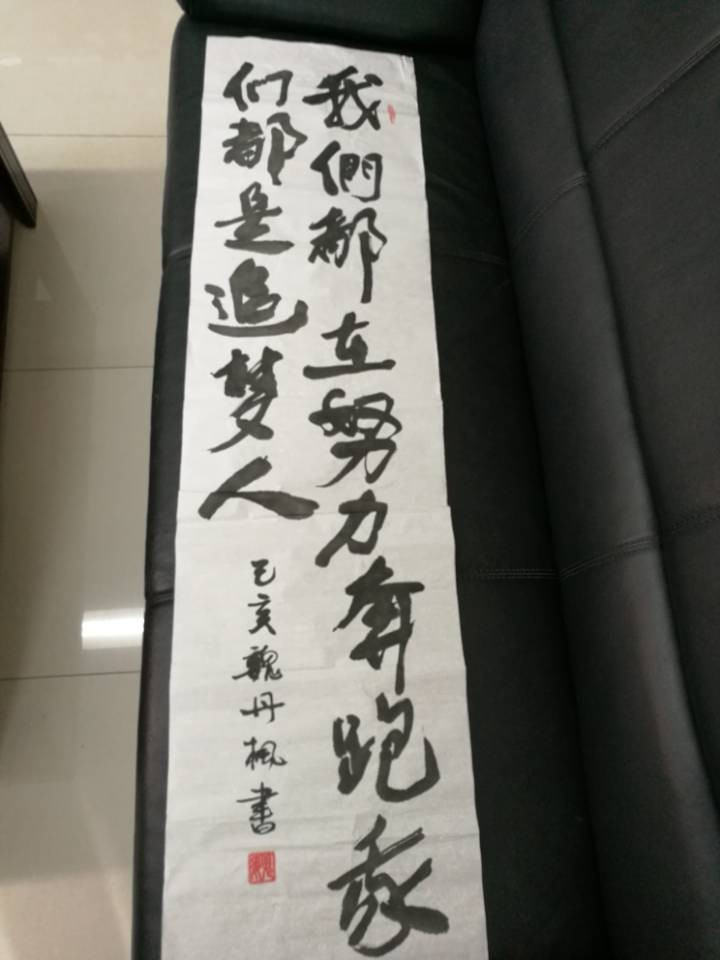 我們都在努力奔跑我
们都是追梦人
己亥魏丹枫書